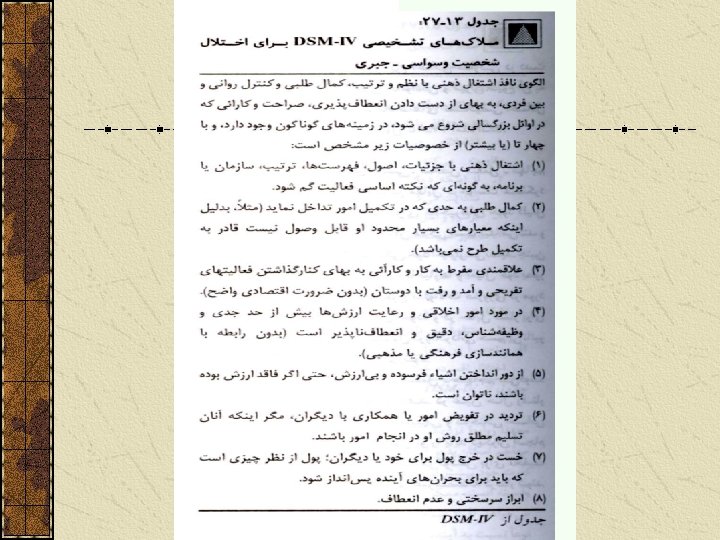 جدول ۱۳-۲۷:
مـلاک‌هـای تـشـخیصی DSM-IV بـرای اخـتـلال
شخصیت وسواسی ـ جبری
الگوی نافذ اشتغال ذهنی با نظم و ترتیب، کمال طلبی و کنترل روانی و
بین فردی، به بهای از دست دادن انعطاف‌پذیری، صراحت و کارائی که
در اوائل بزرگسالی شروع می شود، در زمینه‌های گوناگون وجود دارد، و با
چهار تا (یا بیشتر) از خصوصیات زیر مشخص است:
(۱) اشتغال ذهنی با جزئیات، اصول، فهرست‌ها، ترتیب، سازمان یا
برنامه، به گونه‌ای که نکته اساسی فعالیت گم شود.
(۲) کمال طلبی به حدی که در تکمیل امور تداخل نماید (مثلاً، بدلیل
اینکه معیارهای بسیار محدود او قابل وصول نیست قادر به
تکمیل طرح نمی‌باشد).
(۳) علاقمندی مفرط به کار و کارآئی به بهای کنارگذاشتن فعالیتهای
تفریحی و آمد و رفت با دوستان (بدون ضرورت اقتصادی واضح).
(۴) در مورد امور اخلاقی و رعایت ارزش‌ها بیش از حد جدی و
وظیفه‌شناس، دقیق و انعطاف‌ناپذیر است (بدون رابطه با
همانندسازی فرهنگی یا مذهبی).
(۵) از دور انداختن اشیاء فرسوده و بی‌ارزش، حتی اگر فاقد ارزش بوده
باشند، ناتوان است.
(۶) تردید در تفویض امور یا همکاری با دیگران، مگر اینکه آنان
تسلیم مطلق روش او در انجام امور باشند.
(۷) خست در خرج پول برای خود یا دیگران؛ پول از نظر چیزی است
که باید برای بحران‌های آینده پس‌انداز شود.
(۸) ابراز سرسختی و عدم انعطاف.
جدول از DSM-IV